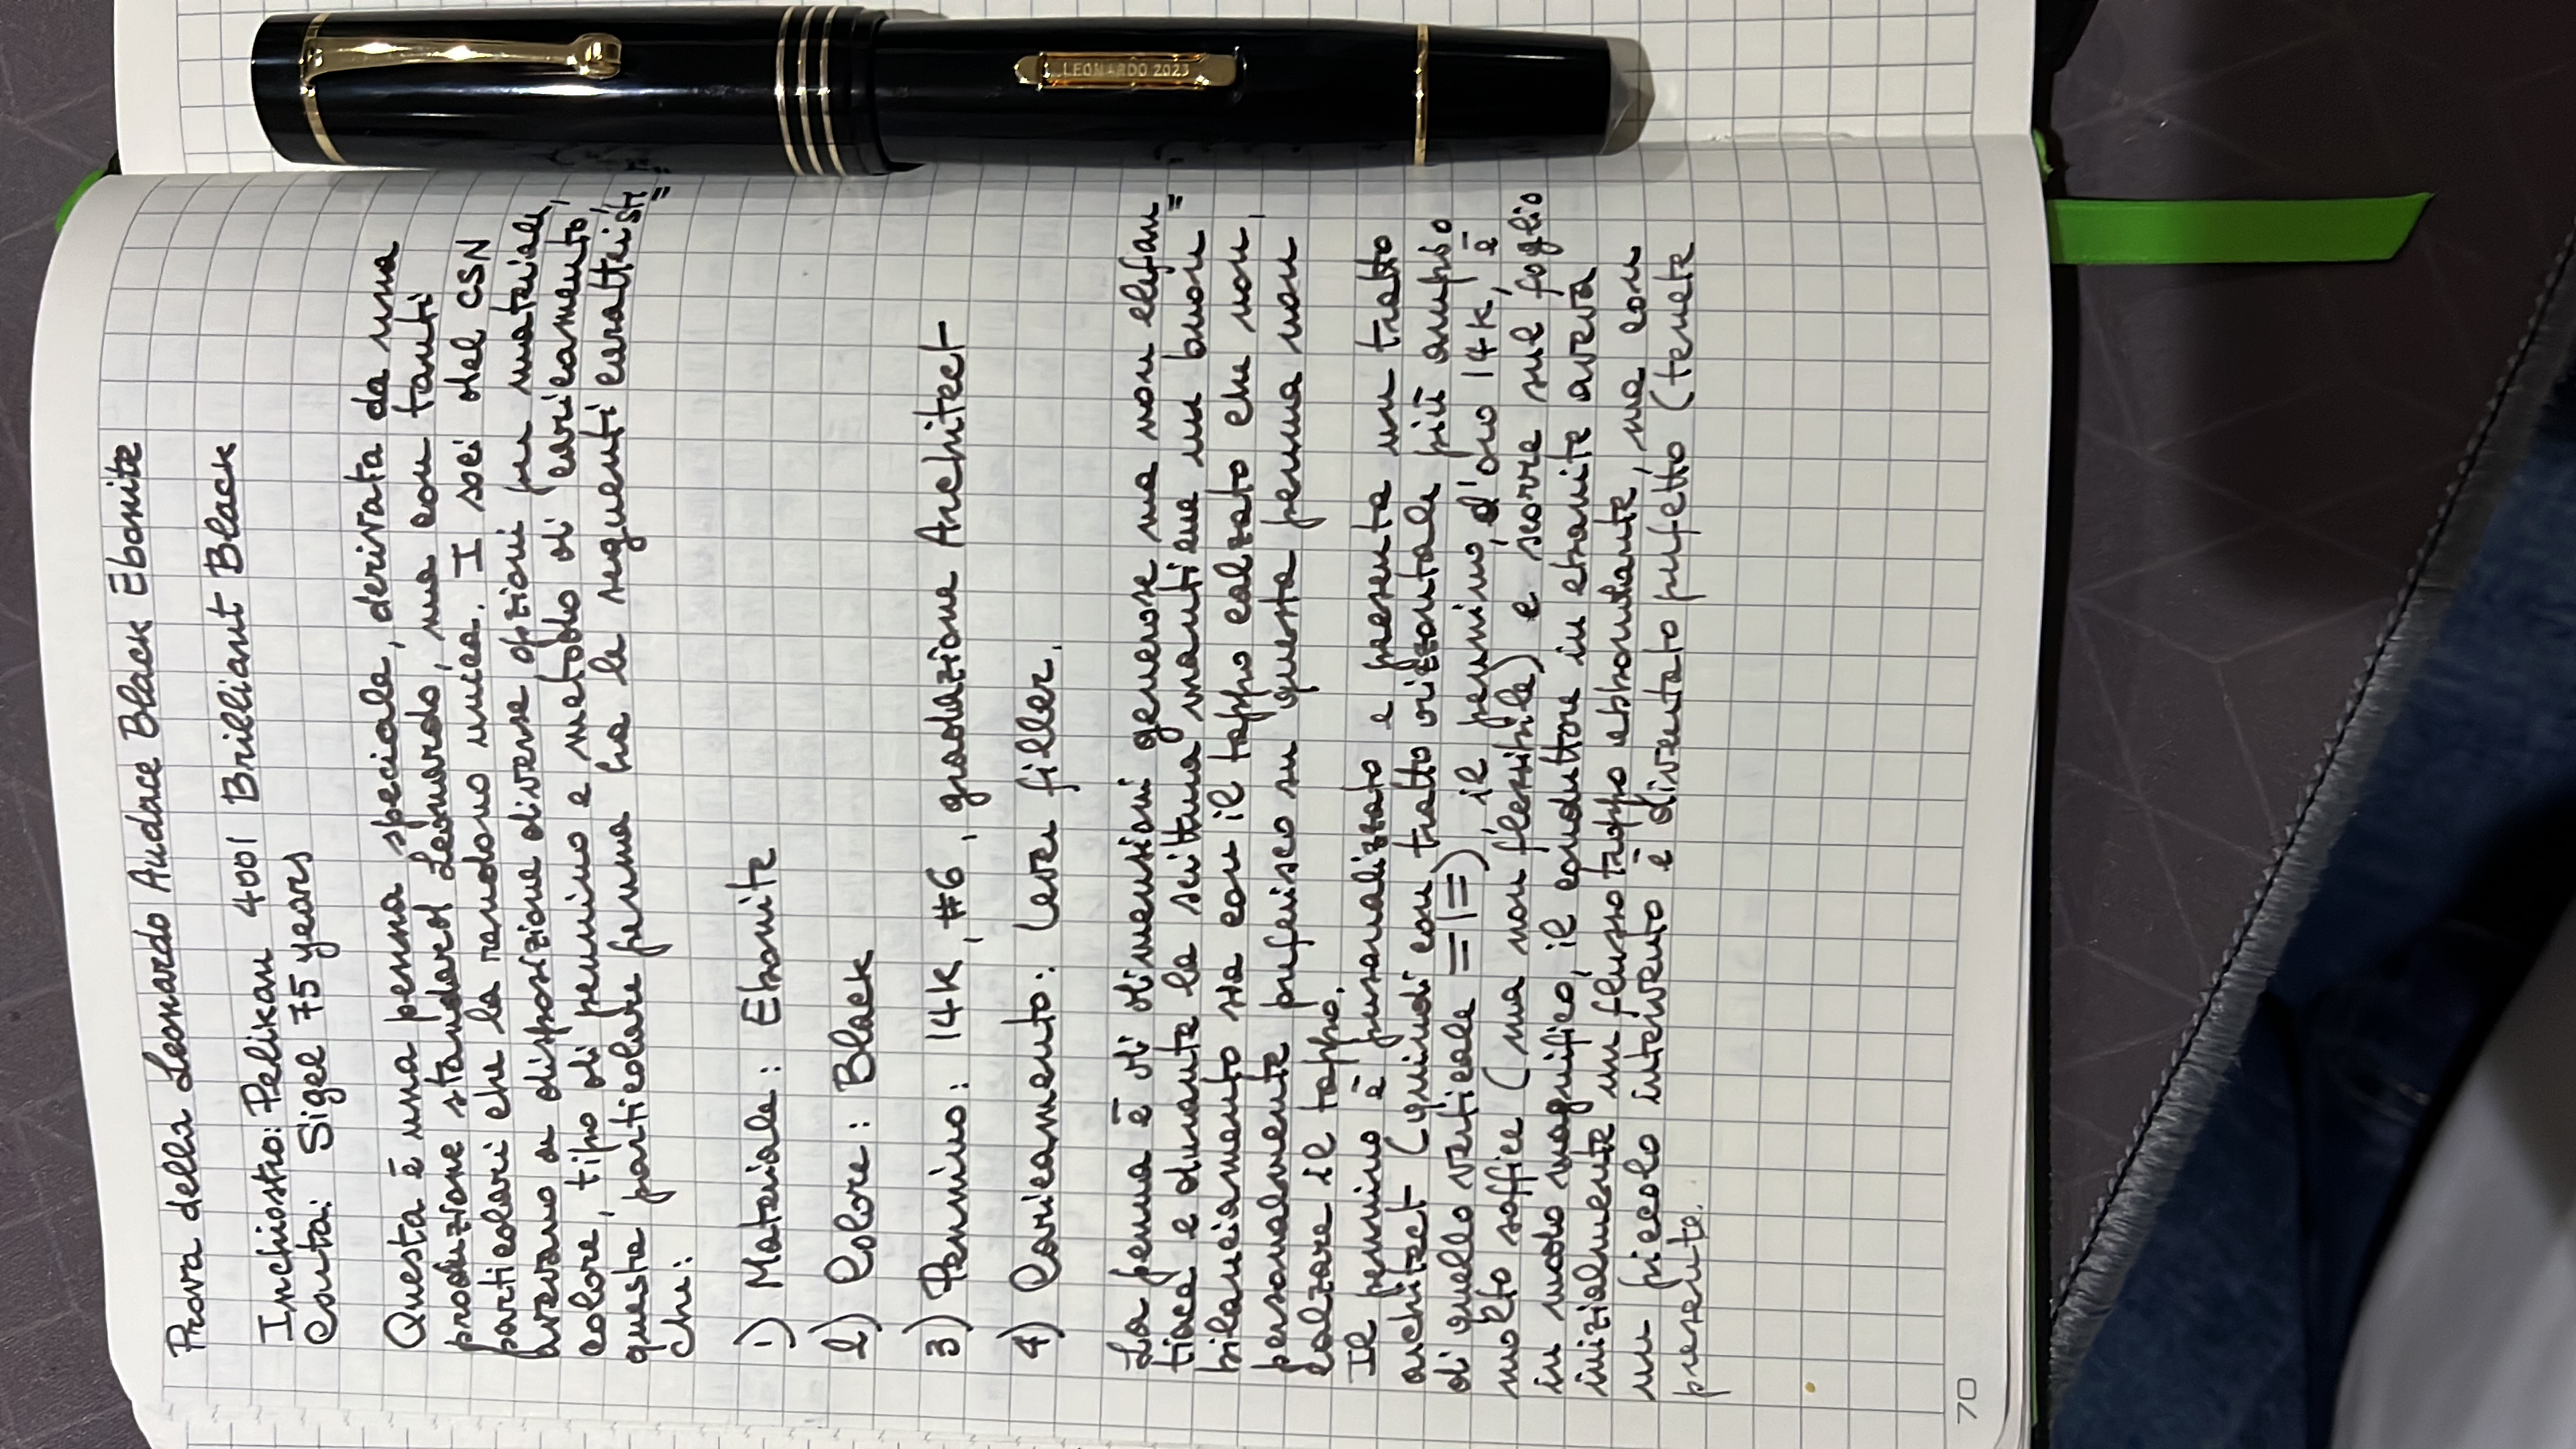 Prova della Leonardo Audace Black Ebonite
Inchiostro: Pelikan 4001 Brilliant Black
Carta: Sigel 75 years
Questa è una penna speciale, derivata da una
produzione standard Leonardo, ma con tanti
particolari che la rendono unica. I soci del CSN
avevano a disposizione diverse opzioni per materiale,
colore, tipo di pennino e metodo di caricamento,
questa particolare penna ha le seguenti caratteristi=
che:
1) Materiale: Ebonite
2) Colore: Black
3) Pennino: 14K, #6, gradazione Architect
4) Caricamento: lever filler.
La penna è di dimensioni generose ma non elefan=
tiaca e durante la scrittura mantiene un buon
bilanciamento sia con il tappo calzato che non,
personalmente preferisco su questa penna non
calzare il tappo.
Il pennino è personalizzato e presenta un tratto
architect (quindi con tratto orizzontale più ampio
di quello verticale =|=), il pennino, d'oro 14K, è
molto soffice (ma non flessibile) e scorre sul foglio
in modo magnifico, il conduttore in ebanite aveva
inizialmente un flusso troppo abbondante, ma con
un piccolo intervento è diventato perfetto (tenete
presente.
70
LEONARDO 2023